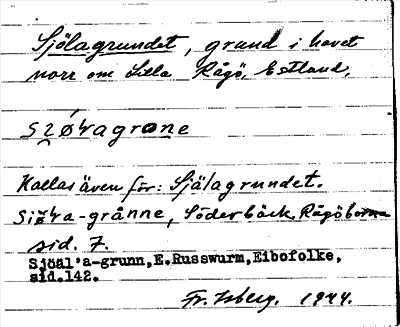 Sjölagrundet, grund i havet
norr om Lilla Rågö, Estland.
Kallas även för: Själagrundet.
Söderbäck, Rågöborna
sid. 7.
Sjöäl'a-grunn, E. Russwurm, Eibofolke,
sid. 142.
Fr. Isberg. 1944.